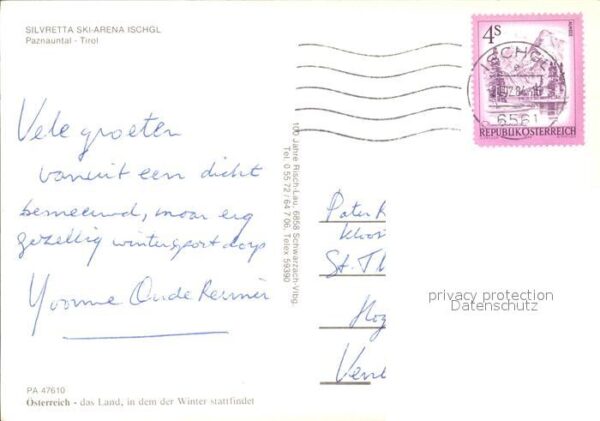 SILVRETTA SKI-ARENA ISCHGL
Paznauntal - Tirol
4S
ALMSEE
ISCHGL
6561
REPUBLIK ÖSTERREICH
Vele groeten
vanuit een dicht
besneeuwd, maar erg
gezellig wintersport dorp
Yvonne Oude
100 Jahre Risch-Lau, 6858 Schwarzach-Vlbg.
Tel. 0 55 72/64 7 06, Telex 59390
Pater
Kloos
St. Th
Hog
Venr
privacy protection
Datenschutz
PA 47610
Österreich - das Land, in dem der Winter stattfindet